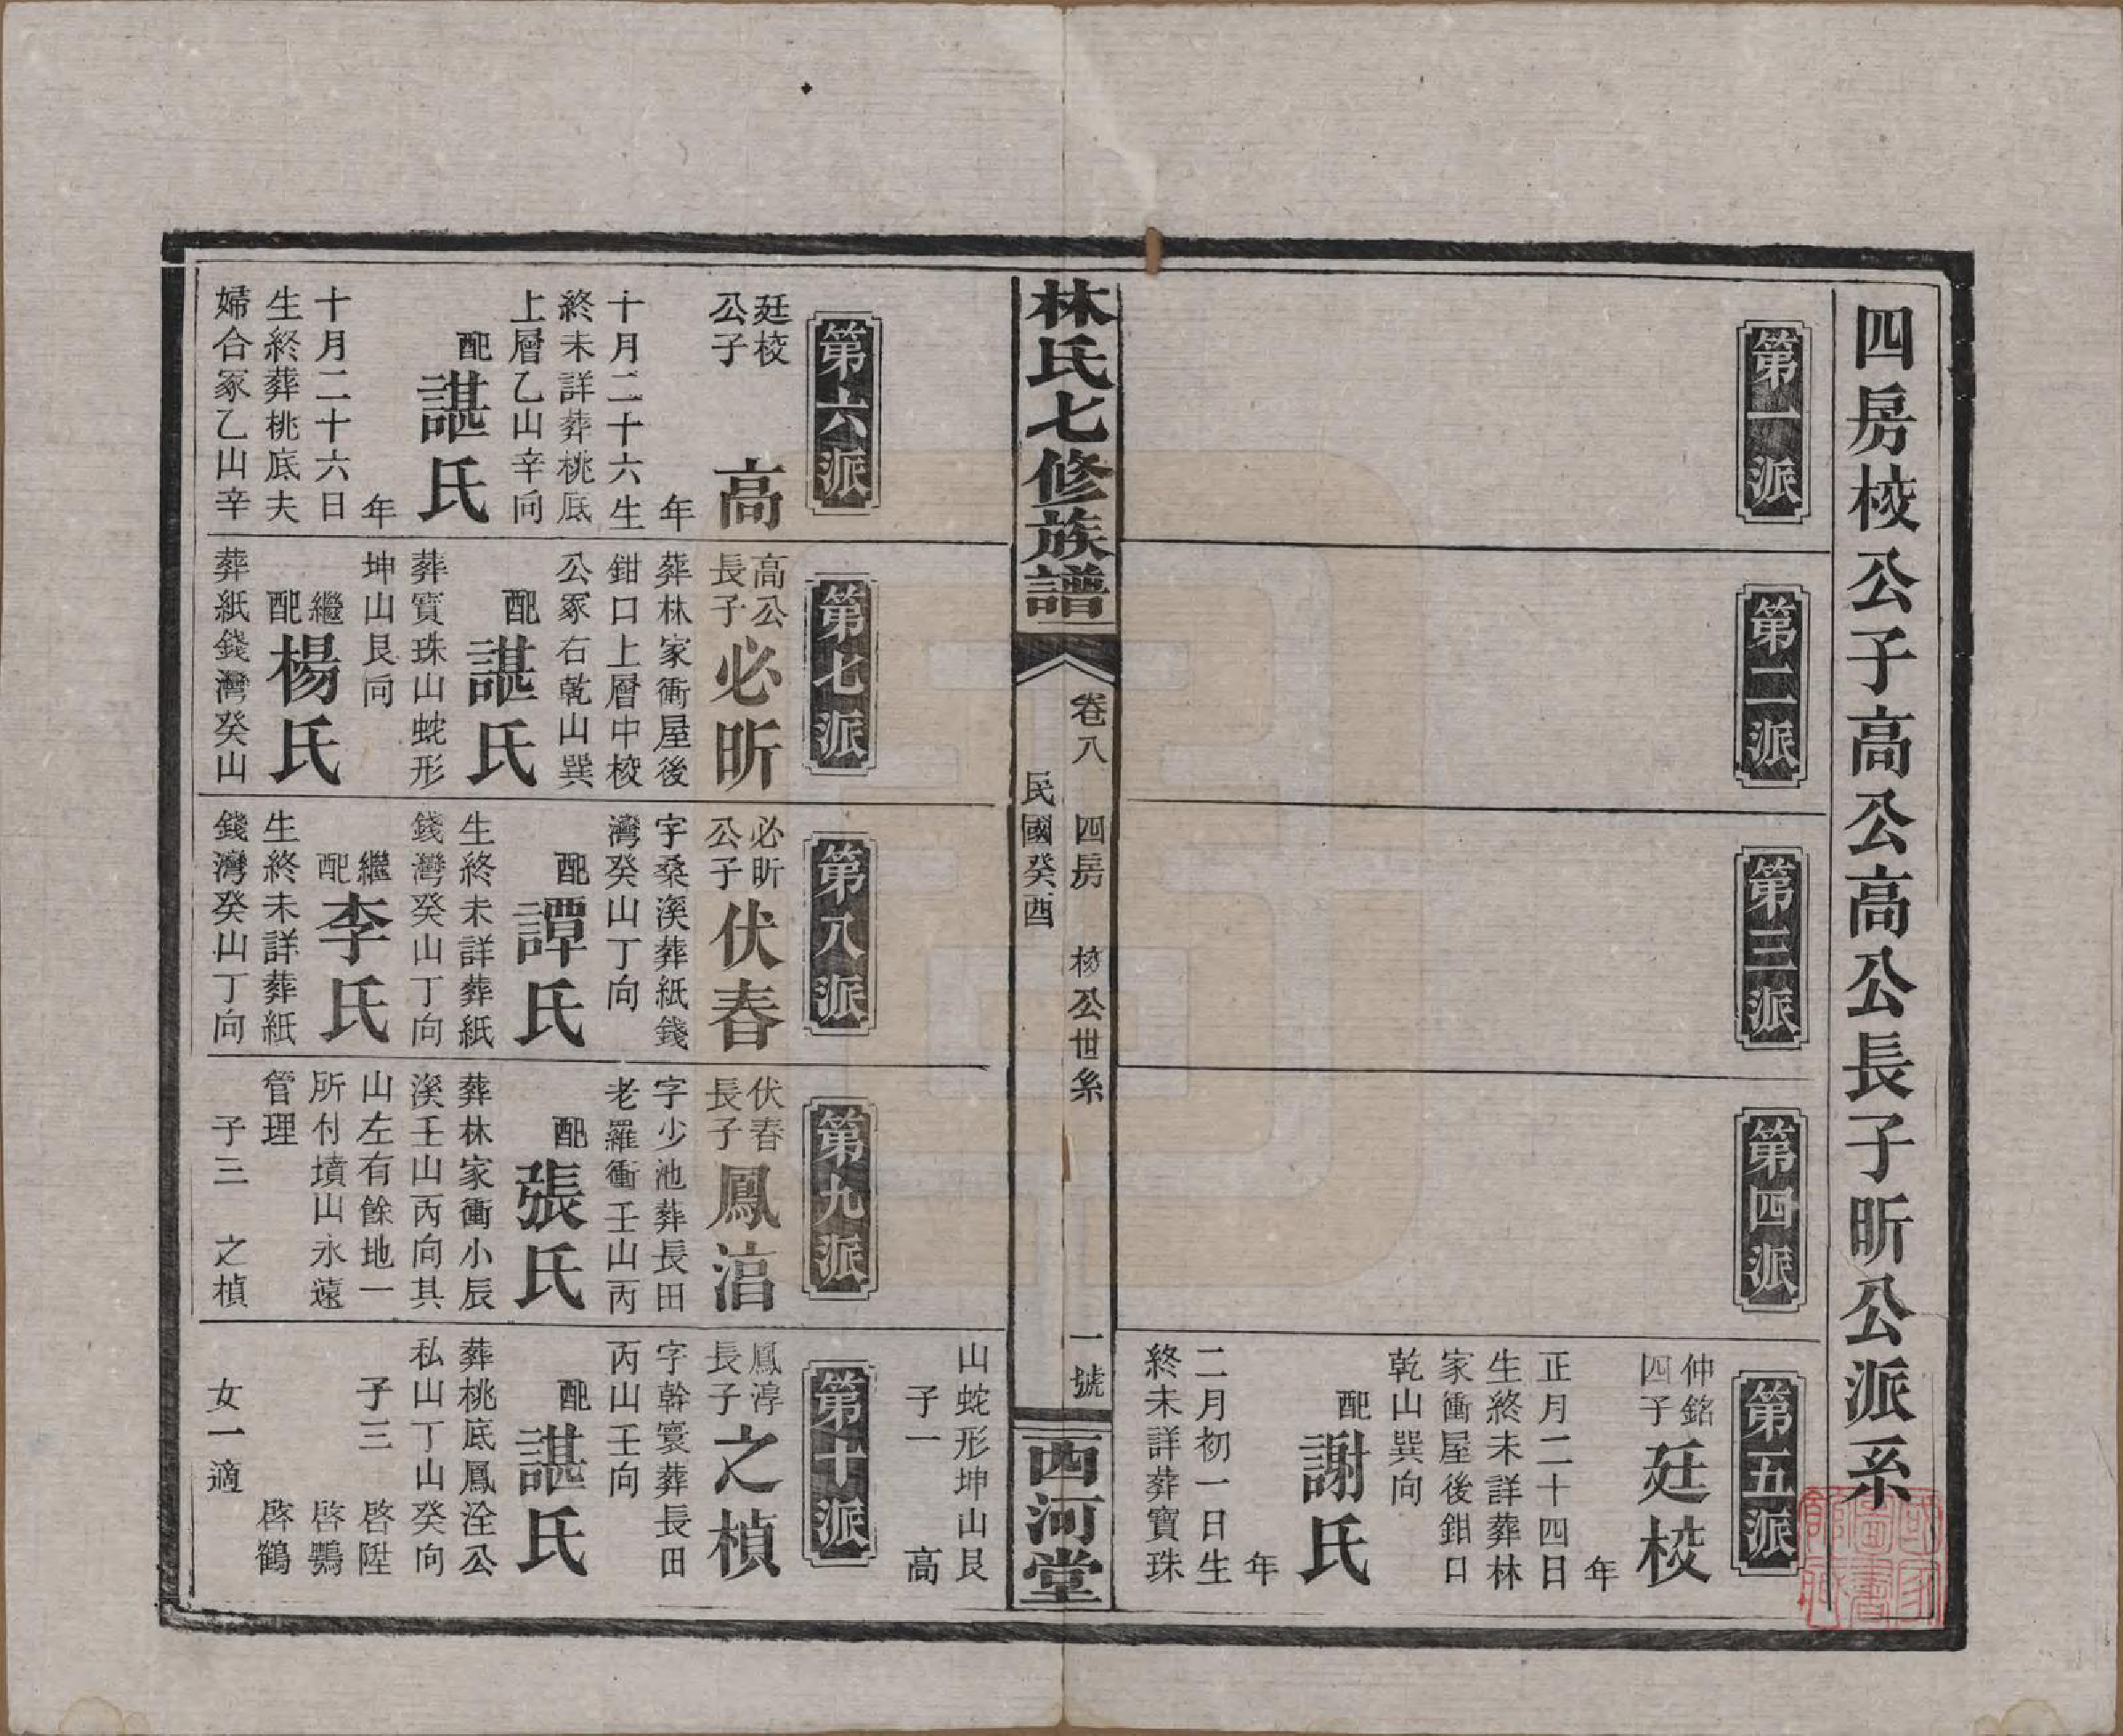 四房校公子高公高公長子昕公派系
第一派
第二派
第三派
第四派
第五派
仲銘
四子
廷校
年
正月二十四日
生終未詳葬林
家衝屋後鉗口
乾山巽向
配
謝氏
年
二月初一日生
終未詳葬寶珠
林氏七修族譜
卷八 四房 校公世系 一號
民國癸酉
西河堂
山蛇形坤山艮
子一 高
第六派
廷校
公子
高
年
十月二十六生
終未詳葬桃底
上層乙山辛向
配
諶氏
年
十月二十六日
生終葬桃底夫
婦合冢乙山辛
第七派
高公
長子
必昕
葬林家衝屋後
鉗口上層中校
公冢右乾山巽
配
諶氏
葬寶珠山蛇形
坤山艮向
繼
配
楊氏
葬紙錢灣癸山
第八派
必昕
公子
伏春
字桑溪葬紙錢
灣癸山丁向
配
譚氏
生終未詳葬紙
錢灣癸山丁向
繼
配
李氏
生終未詳葬紙
錢灣癸山丁向
第九派
伏春
長子
鳳湻
字少池葬長田
老羅衝壬山丙
配
張氏
葬林家衝小辰
溪壬山丙向其
山左有餘地一
所付墳山永遠
管理
子三 之楨
第十派
鳳淳
長子
之楨
字幹寰葬長田
丙山壬向
配
諶氏
葬桃底鳳洤公
私山丁山癸向
子三 啓陞
啓鶚
啓鶴
女一適